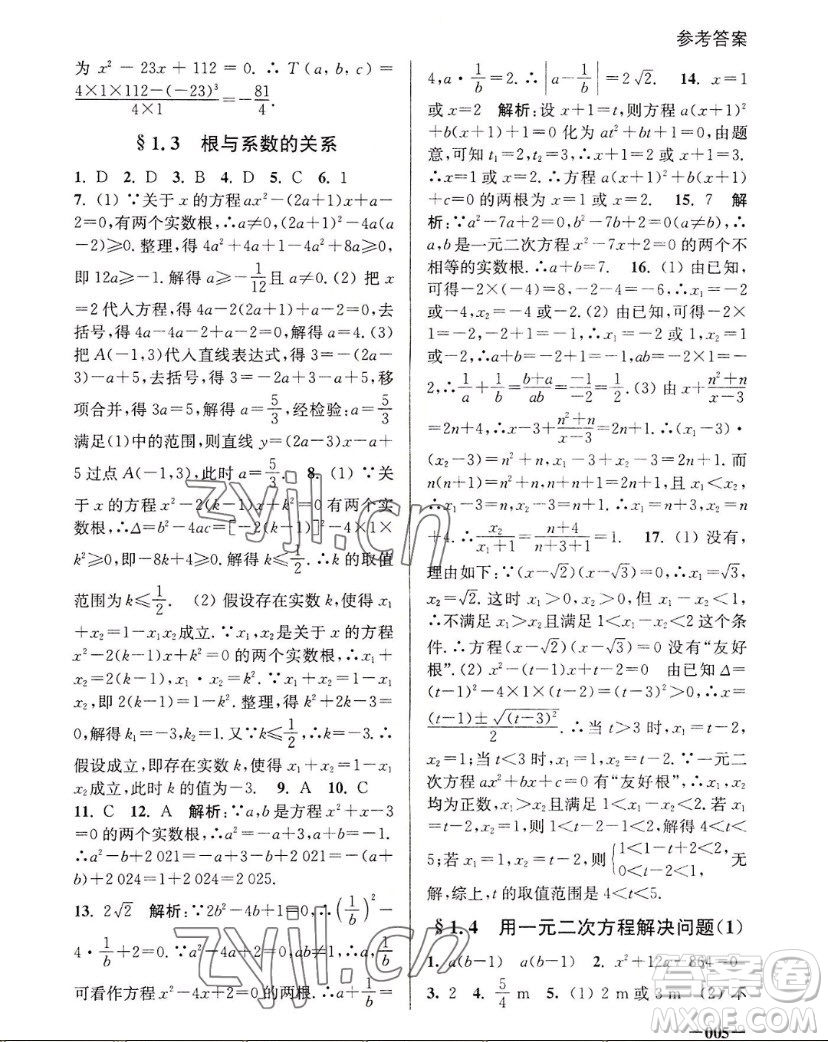 参考答案
为 x²－23x＋112＝0. ∴ T(a, b, c)＝
4×1×112－(－23)³/4×1＝－81/4.
§1.3 根与系数的关系
1. D 2. D 3. B 4. D 5. C 6. 1
7. (1) ∵关于 x 的方程 ax²－(2a＋1)x＋a－
2＝0,有两个实数根,∴a≠0,(2a＋1)²－4a(a
－2)≥0. 整理,得 4a²＋4a＋1－4a²＋8a≥0,
即 12a≥－1. 解得 a≥－1/12且 a≠0. (2) 把 x
＝2代入方程,得 4a－2(2a＋1)＋a－2＝0,去
括号,得 4a－4a－2＋a－2＝0,解得 a＝4. (3)
把 A(－1,3)代入直线表达式,得 3＝－(2a－3)
－a＋5,去括号,得 3＝－2a＋3－a＋5,移
项合并,得 3a＝5,解得 a＝5/3,经检验: a＝5/3
满足(1)中的范围,则直线 y＝(2a－3)x－a＋
5 过点 A(－1,3),此时 a＝5/3. 8. (1) ∵关
于 x 的方程 x²－2(k－1)x＋k²＝0 有两个实
数根,∴Δ＝b²－4ac＝[－2(k－1)]²－4×1×
k²≥0. ∴－8k＋4≥0. 解得 k≤1/2. ∴k 的取值
范围为 k≤1/2. (2) 假设存在实数 k,使得 x₁
＋x₂＝1－x₁x₂成立. ∵x₁,x₂是关于 x 的方程
x²－2(k－1)x＋k²＝0 的两个实数根,∴x₁＋
x₂＝2(k－1),x₁·x₂＝k². 又∵x₁＋x₂＝1－x₁
x₂,即 2(k－1)＝1－k²,整理,得 k²＋2k－3＝
0,解得 k₁＝－3,k₂＝1. 又∵k≤1/2,∴k＝－3.
假设成立,即存在实数 k,使得 x₁＋x₂＝1－x₁
x₂成立,此时 k 的值为－3. 9. A 10. C
11. C 12. A 解析:∵a,b是方程 x²＋x－3
＝0 的两个实数根,∴a²＋a＝3,a＋b＝－1.
∴a²－b＋2 021＝3－a－b＋2 021＝－(a＋
b)＋2 024＝1＋2 024＝2 025.
13. 2√2 解析:∵2b²－4b＋1＝0,∴(1/b)²－
4·1/b＋2＝0. ∵a²－4a＋2＝0,ab≠1,∴a,1/b
可看作方程 x²－4x＋2＝0 的两根. ∴a＋1/b＝
4,a·1/b＝2. ∴|a－1/b|＝2√2. 14. x＝1
或 x＝2 解析:设 x＋1＝t,则方程 a(x＋1)²
＋b(x＋1)＋1＝0 化为 at²＋bt＋1＝0,由题
意,可知 t₁＝2,t₂＝3. ∴x＋1＝2 或 x＋1＝3.
∴x＝1 或 x＝2. ∴方程 a(x＋1)²＋b(x＋1)＋1
＝0的两根为 x＝1 或 x＝2. 15. 7 解
析:∵a²－7a＋2＝0,b²－7b＋2＝0(a≠b),∴
a,b是一元二次方程 x²－7x＋2＝0 的两个不
相等的实数根. ∴a＋b＝7. 16. (1) 由已知,
可得－2×(－4)＝8,－2－4＝－6,∴x₁＝－2
或－4,x₂＝－4 或－2. (2) 由已知,可得－2×
1＝－2,－2＋1＝－1,∴x₁＝－2 或 1,x₂＝1
或－2. ∴a＋b＝－2＋1＝－1,ab＝－2×1＝－
2,∴1/a＋1/b＝b＋a/ab＝－1/－2＝1/2. (3) 由 x＋n²＋n/x－3
＝2n＋4,x－3＋n²＋n/x－3＝2n＋1. ∵n²＋n/x－3·
(x－3)＝n²＋n,x－3＋n²＋n/x－3＝2n＋1. 而
n(n＋1)＝n²＋n,n＋n＋1＝2n＋1,x₁＜x₂,
∴x₁－3＝n,x₂－3＝n＋1. ∴x₁＝n＋3,x₂＝n
＋4. ∴x₂/x₁＋1＝n＋4/n＋3＋1＝1. 17. (1) 没有,
理由如下:∵(x－√2)(x－√3)＝0,∴x₁＝√3,
x₂＝√2. 这时 x₁＞0,x₂＞0,但 x₁－x₂＜1,
∴不满足 x₁＞x₂且满足 1＜x₁－x₂＜2 这个条
件. ∴方程(x－√2)(x－√3)＝0 没有“友好
根”. (2) x²－(t－1)x＋t－2＝0 由已知 Δ＝
(t－1)²－4×1×(t－2)＝(t－3)²＞0,∴x＝
(t－1)±√(t－3)²/2. ∴当 t＞3 时,x₁＝t－2,
x₂＝1;当 t＜3 时,x₁＝1,x₂＝t－2. ∵一元二
次方程 ax²＋bx＋c＝0 有“友好根”,∴x₁,x₂
均为正数,x₁＞x₂且满足 1＜x₁－x₂＜2. 若 x₁
＝t－2,x₂＝1,则 1＜t－2－1＜2,解得 4＜t＜
5;若 x₁＝1,x₂＝t－2,则{1＜1－t＋2＜2, 0＜t－2＜1, 无
解,综上,t 的取值范围是 4＜t＜5.
§1.4 用一元二次方程解决问题(1)
1. a(b－1) a(b－1) 2. x²＋12x－864＝0
3. 2 4. 5/4 m 5. (1) 2 m或 3 m (2) 不
—005—
zyjl.cn
zyjl.cn
答案圈
MXQE.COM